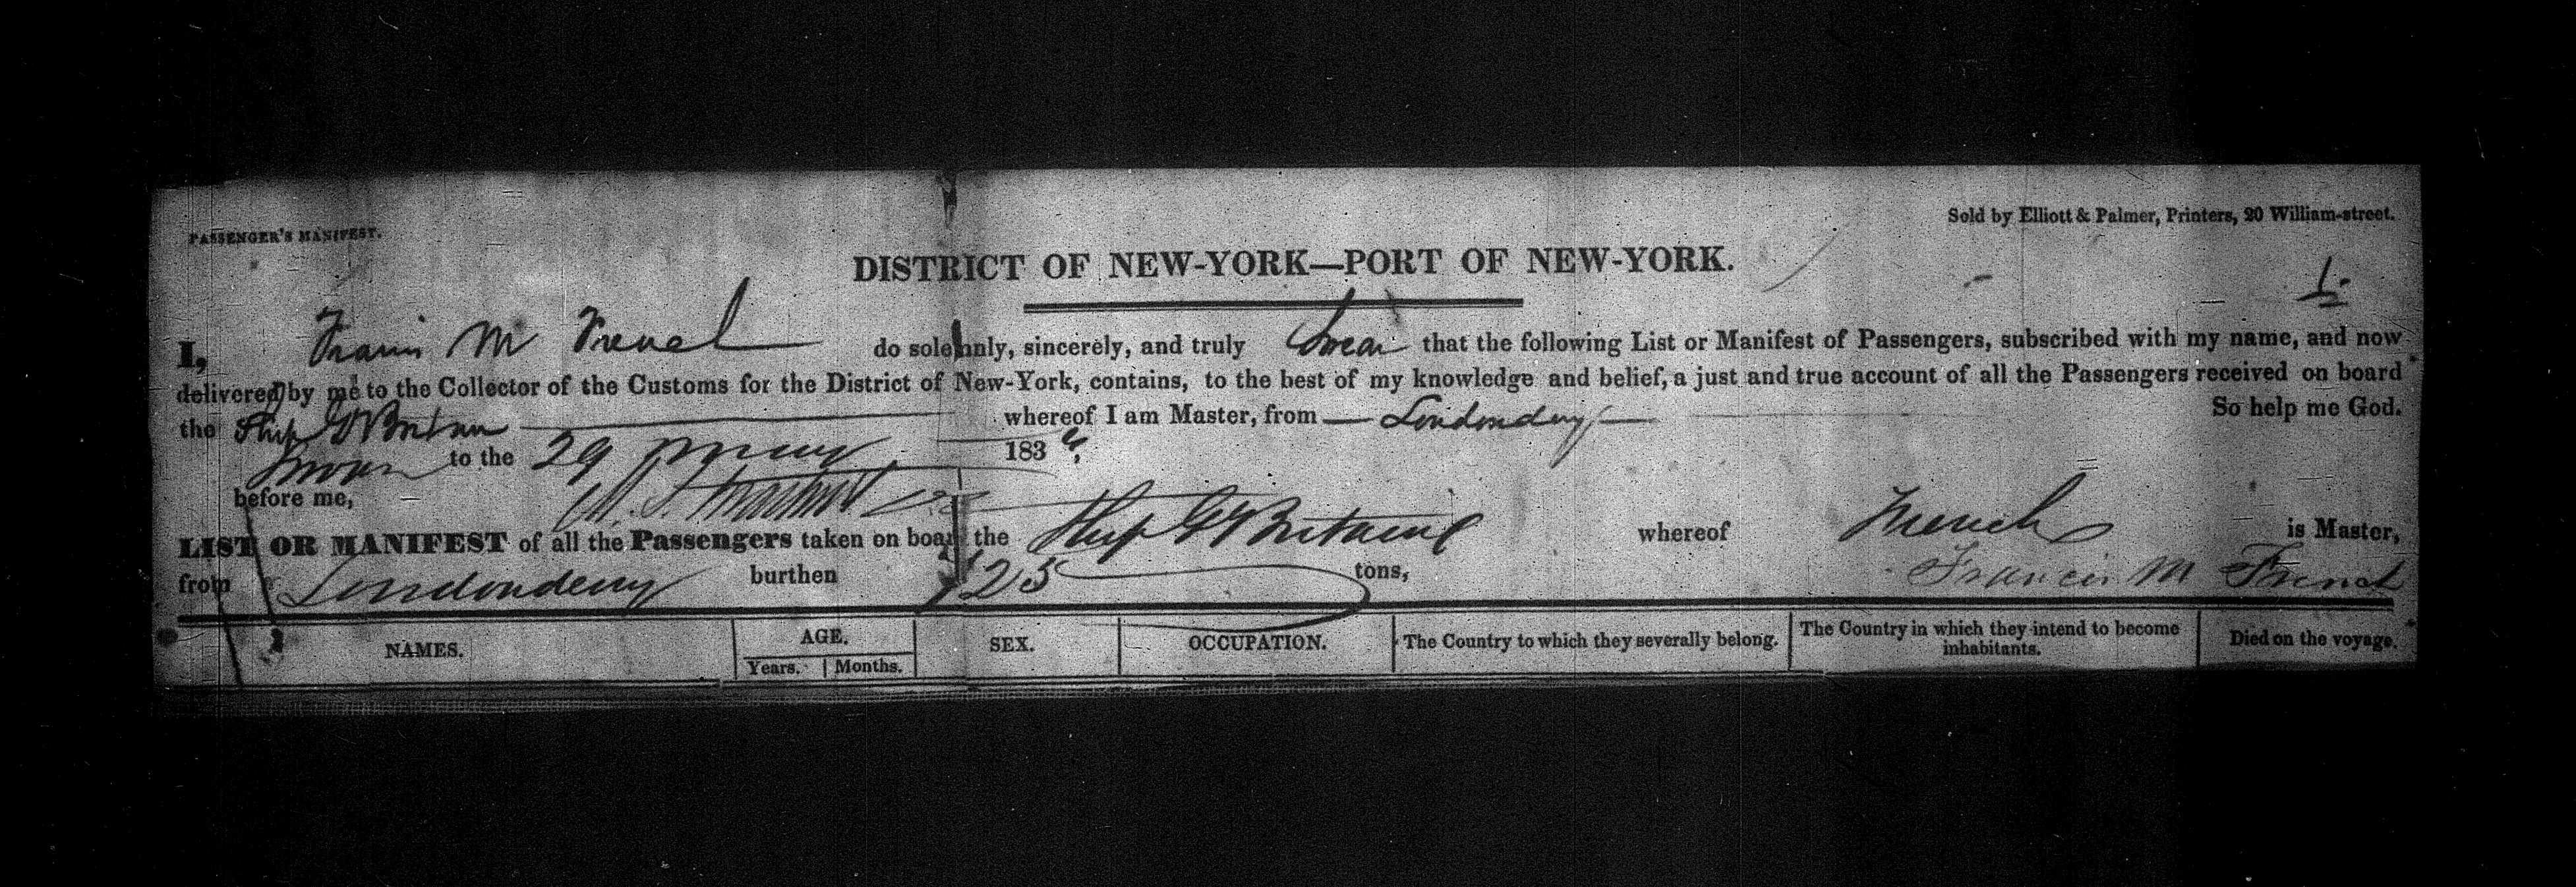 Sold by Elliott & Palmer, Printers, 20 William-street.
PASSENGER'S MANIFEST.
DISTRICT OF NEW-YORK—PORT OF NEW-YORK.
1.
I, Francis M French do solemnly, sincerely, and truly Swear that the following List or Manifest of Passengers, subscribed with my name, and now
delivered by me to the Collector of the Customs for the District of New-York, contains, to the best of my knowledge and belief, a just and true account of all the Passengers received on board
the Ship G Britain whereof I am Master, from — Londonderry — So help me God.
Sworn to the 29 183
before me,
LIST OR MANIFEST of all the Passengers taken on board the Ship G Britain whereof French is Master,
from Londonderry burthen 725 tons, Francis M French
NAMES. AGE. SEX. OCCUPATION. The Country to which they severally belong. The Country in which they intend to become inhabitants. Died on the voyage.
Years. Months.